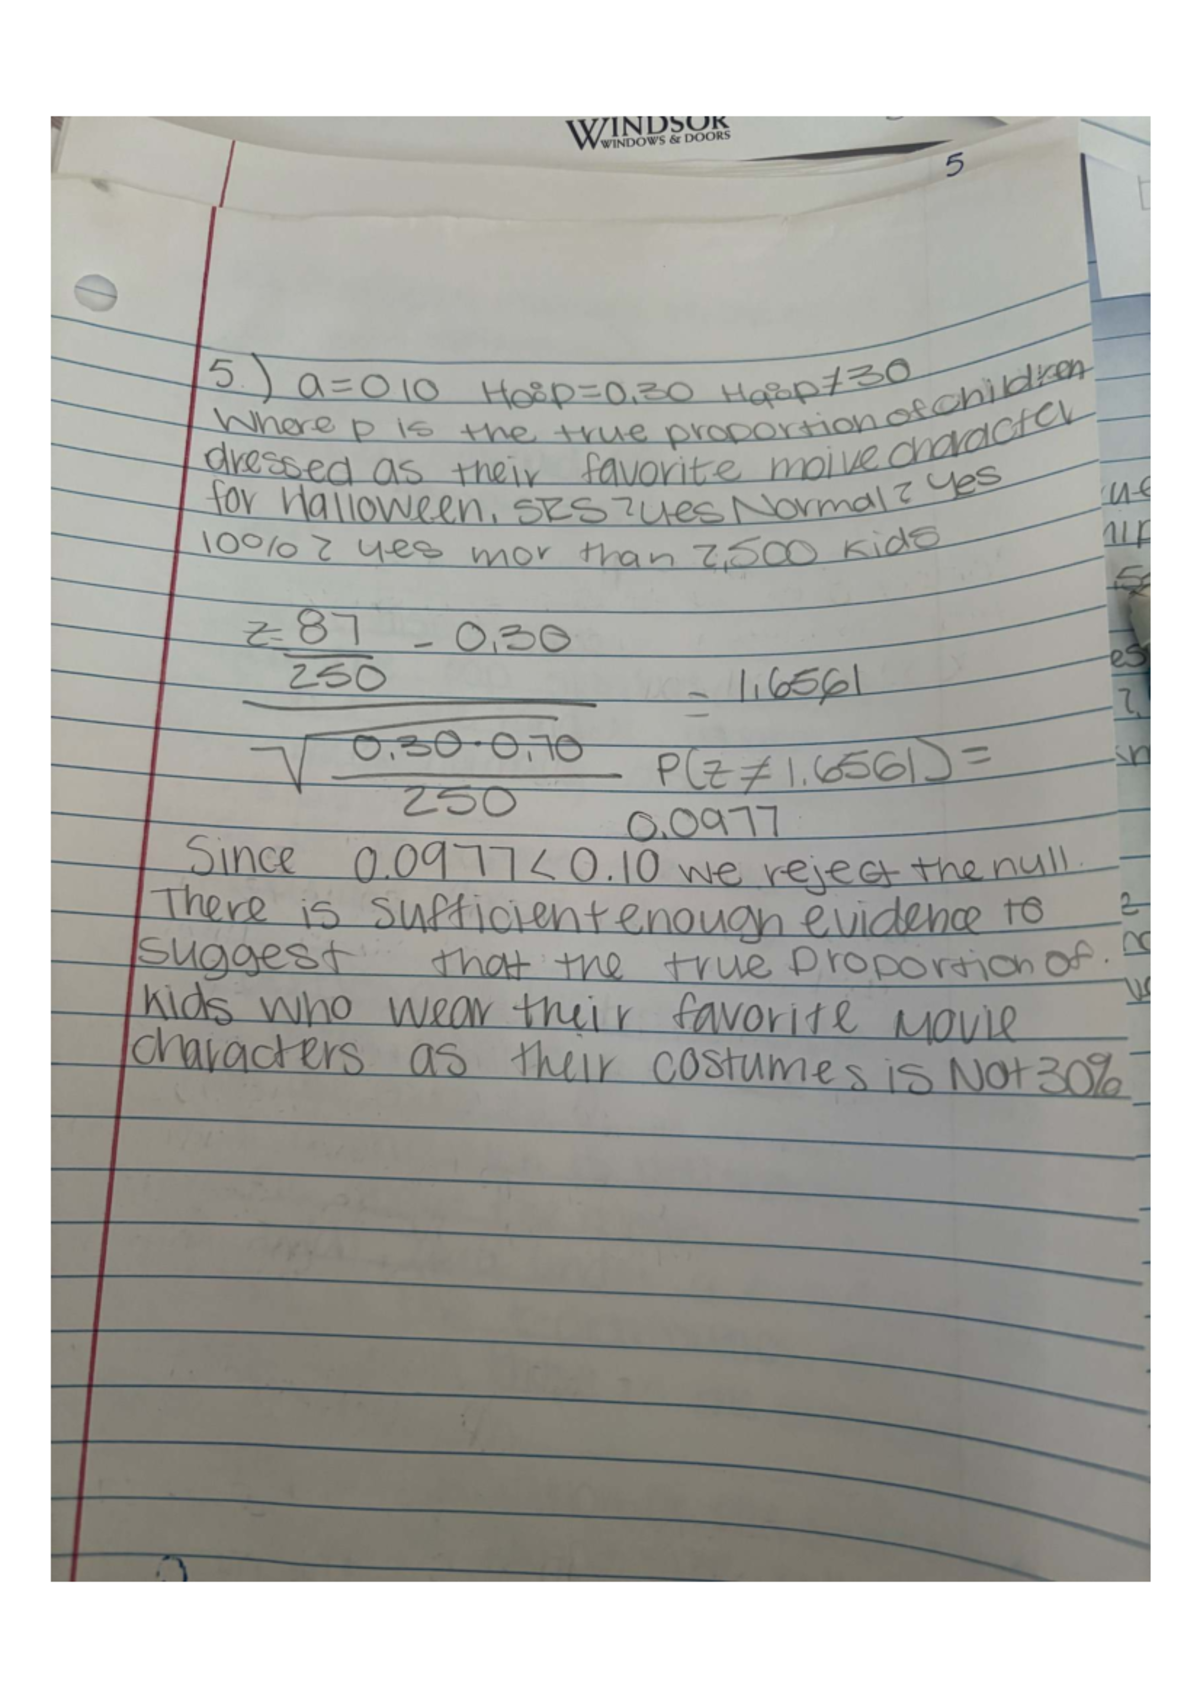 WINDSOR
WINDOWS & DOORS
5
5.) a=0.10 Ho:p=0.30 Ha:p≠30
Where p is the true proportion of children
dressed as their favorite moive character
for Halloween. SRS? yes Normal? yes
10%? yes mor than 2,500 kids
z= 87/250 - 0.30
√ 0.30·0.70/250
= 1.6561
P(z≠1.6561)=
0.0977
Since 0.0977<0.10 we reject the null.
There is sufficient enough evidence to
suggest that the true proportion of.
kids who wear their favorite movie
characters as their costumes is Not 30%